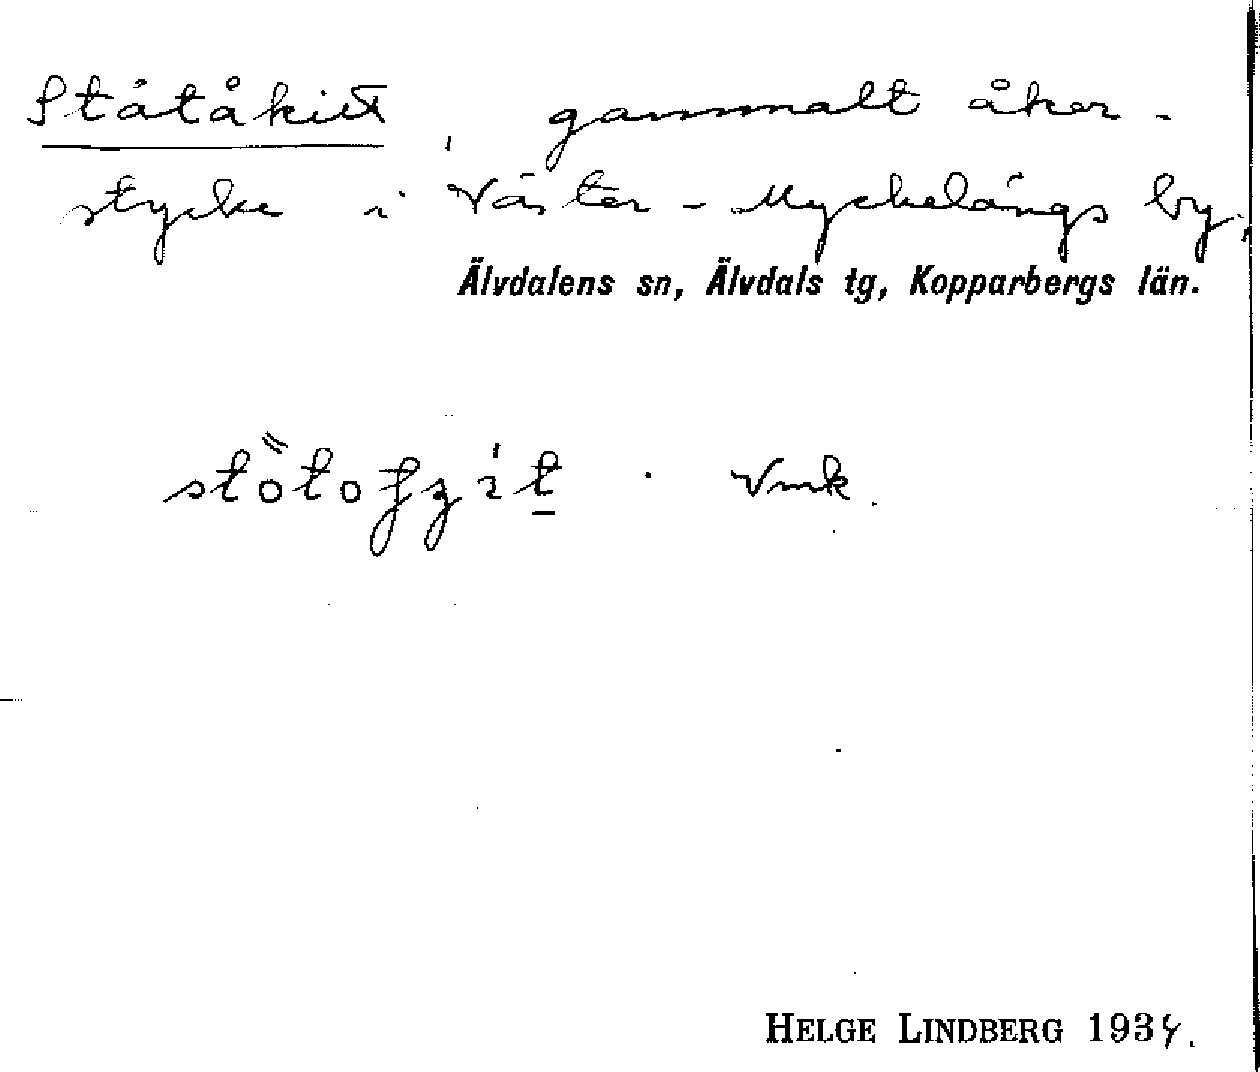 Ståtåkitt, gammalt åker-
stycke i Väster-Myckelängs by,
Älvdalens sn, Älvdals tg, Kopparbergs län.
Vmk.
HELGE LINDBERG 1934.